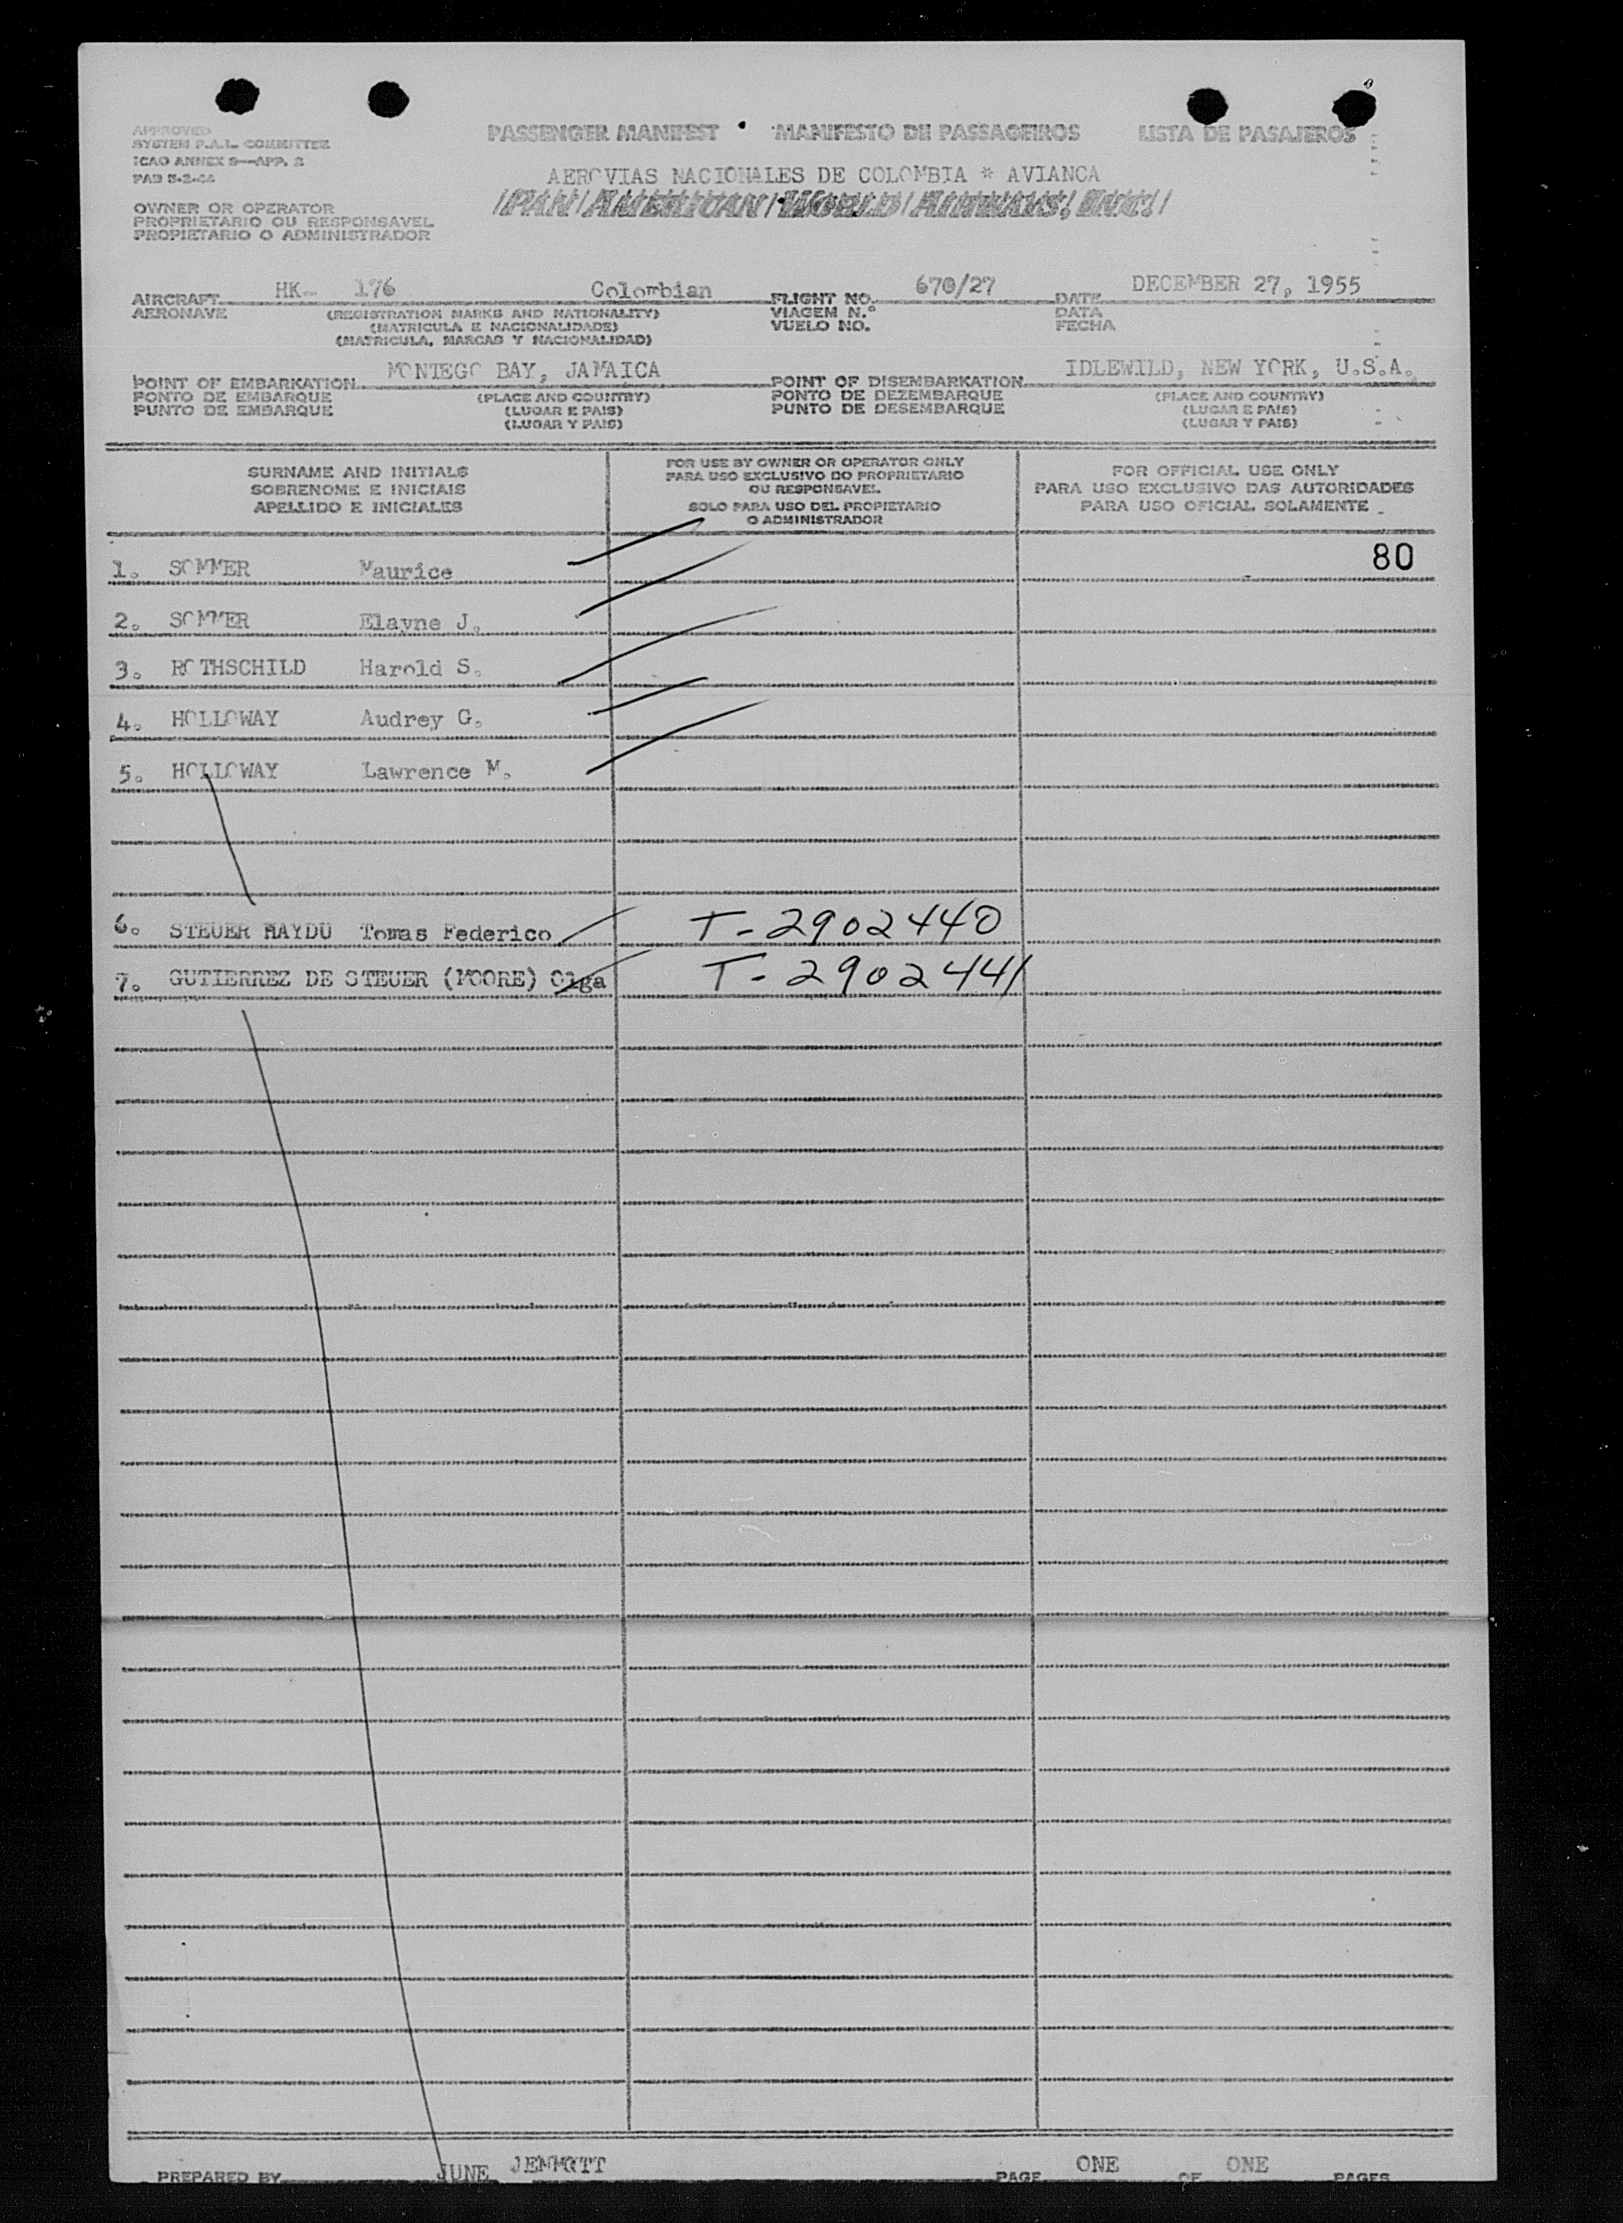 PASSENGER MANIFEST • MANIFESTO DE PASSAGEIROS LISTA DE PASAJEROS
APPROVED
SYSTEM P.A.L. COMMITTEE
ICAO ANNEX 9—APP. 2
PAB 5-2-44
AEROVIAS NACIONALES DE COLOMBIA * AVIANCA
PAN AMERICAN WORLD AIRWAYS, INC.
OWNER OR OPERATOR
PROPRIETARIO OU RESPONSAVEL
PROPIETARIO O ADMINISTRADOR
AIRCRAFT HK- 176 Colombian FLIGHT NO. 670/27 DATE DECEMBER 27, 1955
AERONAVE (REGISTRATION MARKS AND NATIONALITY) VIAGEM N.° DATA
(MATRICULA E NACIONALIDADE) VUELO NO. FECHA
(MATRICULA, MARCAS Y NACIONALIDAD)
POINT OF EMBARKATION MONTEGO BAY, JAMAICA POINT OF DISEMBARKATION IDLEWILD, NEW YORK, U.S.A.
PONTO DE EMBARQUE (PLACE AND COUNTRY) PONTO DE DEZEMBARQUE (PLACE AND COUNTRY)
PUNTO DE EMBARQUE (LUGAR E PAIS) PUNTO DE DESEMBARQUE (LUGAR E PAIS)
(LUGAR Y PAIS) (LUGAR Y PAIS)
SURNAME AND INITIALS
SOBRENOME E INICIAIS
APELLIDO E INICIALES
FOR USE BY OWNER OR OPERATOR ONLY
PARA USO EXCLUSIVO DO PROPRIETARIO
OU RESPONSAVEL
SOLO PARA USO DEL PROPIETARIO
O ADMINISTRADOR
FOR OFFICIAL USE ONLY
PARA USO EXCLUSIVO DAS AUTORIDADES
PARA USO OFICIAL SOLAMENTE
80
1. SOMMER Maurice
2. SOMMER Elayne J.
3. ROTHSCHILD Harold S.
4. HOLLOWAY Audrey G.
5. HOLLOWAY Lawrence M.
6. STEUER HAYDU Tomas Federico T-2902440
7. GUTIERREZ DE STEUER (MOORE) Olga T-2902441
PREPARED BY JUNE JEMMOTT PAGE ONE OF ONE PAGES